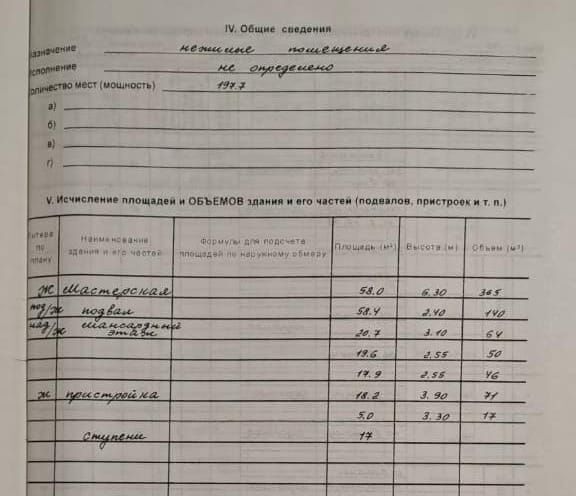 IV. Общие сведения
азначение нежилые помещения
сполнение не определено
оличество мест (мощность) 197.7
а)
б)
в)
г)
V. Исчисление площадей и ОБЪЕМОВ здания и его частей (подвалов, пристроек и т. п.)
итера по плану Наименование здания и его частей Формулы для подсчета площадей по наружному обмеру Площадь (м²) Высота (м) Объем (м³)
Ж Мастерская 58.0 6.30 365
под/ж подвал 58.4 2.40 140
над/ж мансардный этаж 20.7 3.10 64
19.6 2.55 50
17.9 2.55 46
ж пристройка 18.2 3.90 71
5.0 3.30 17
ступени 17